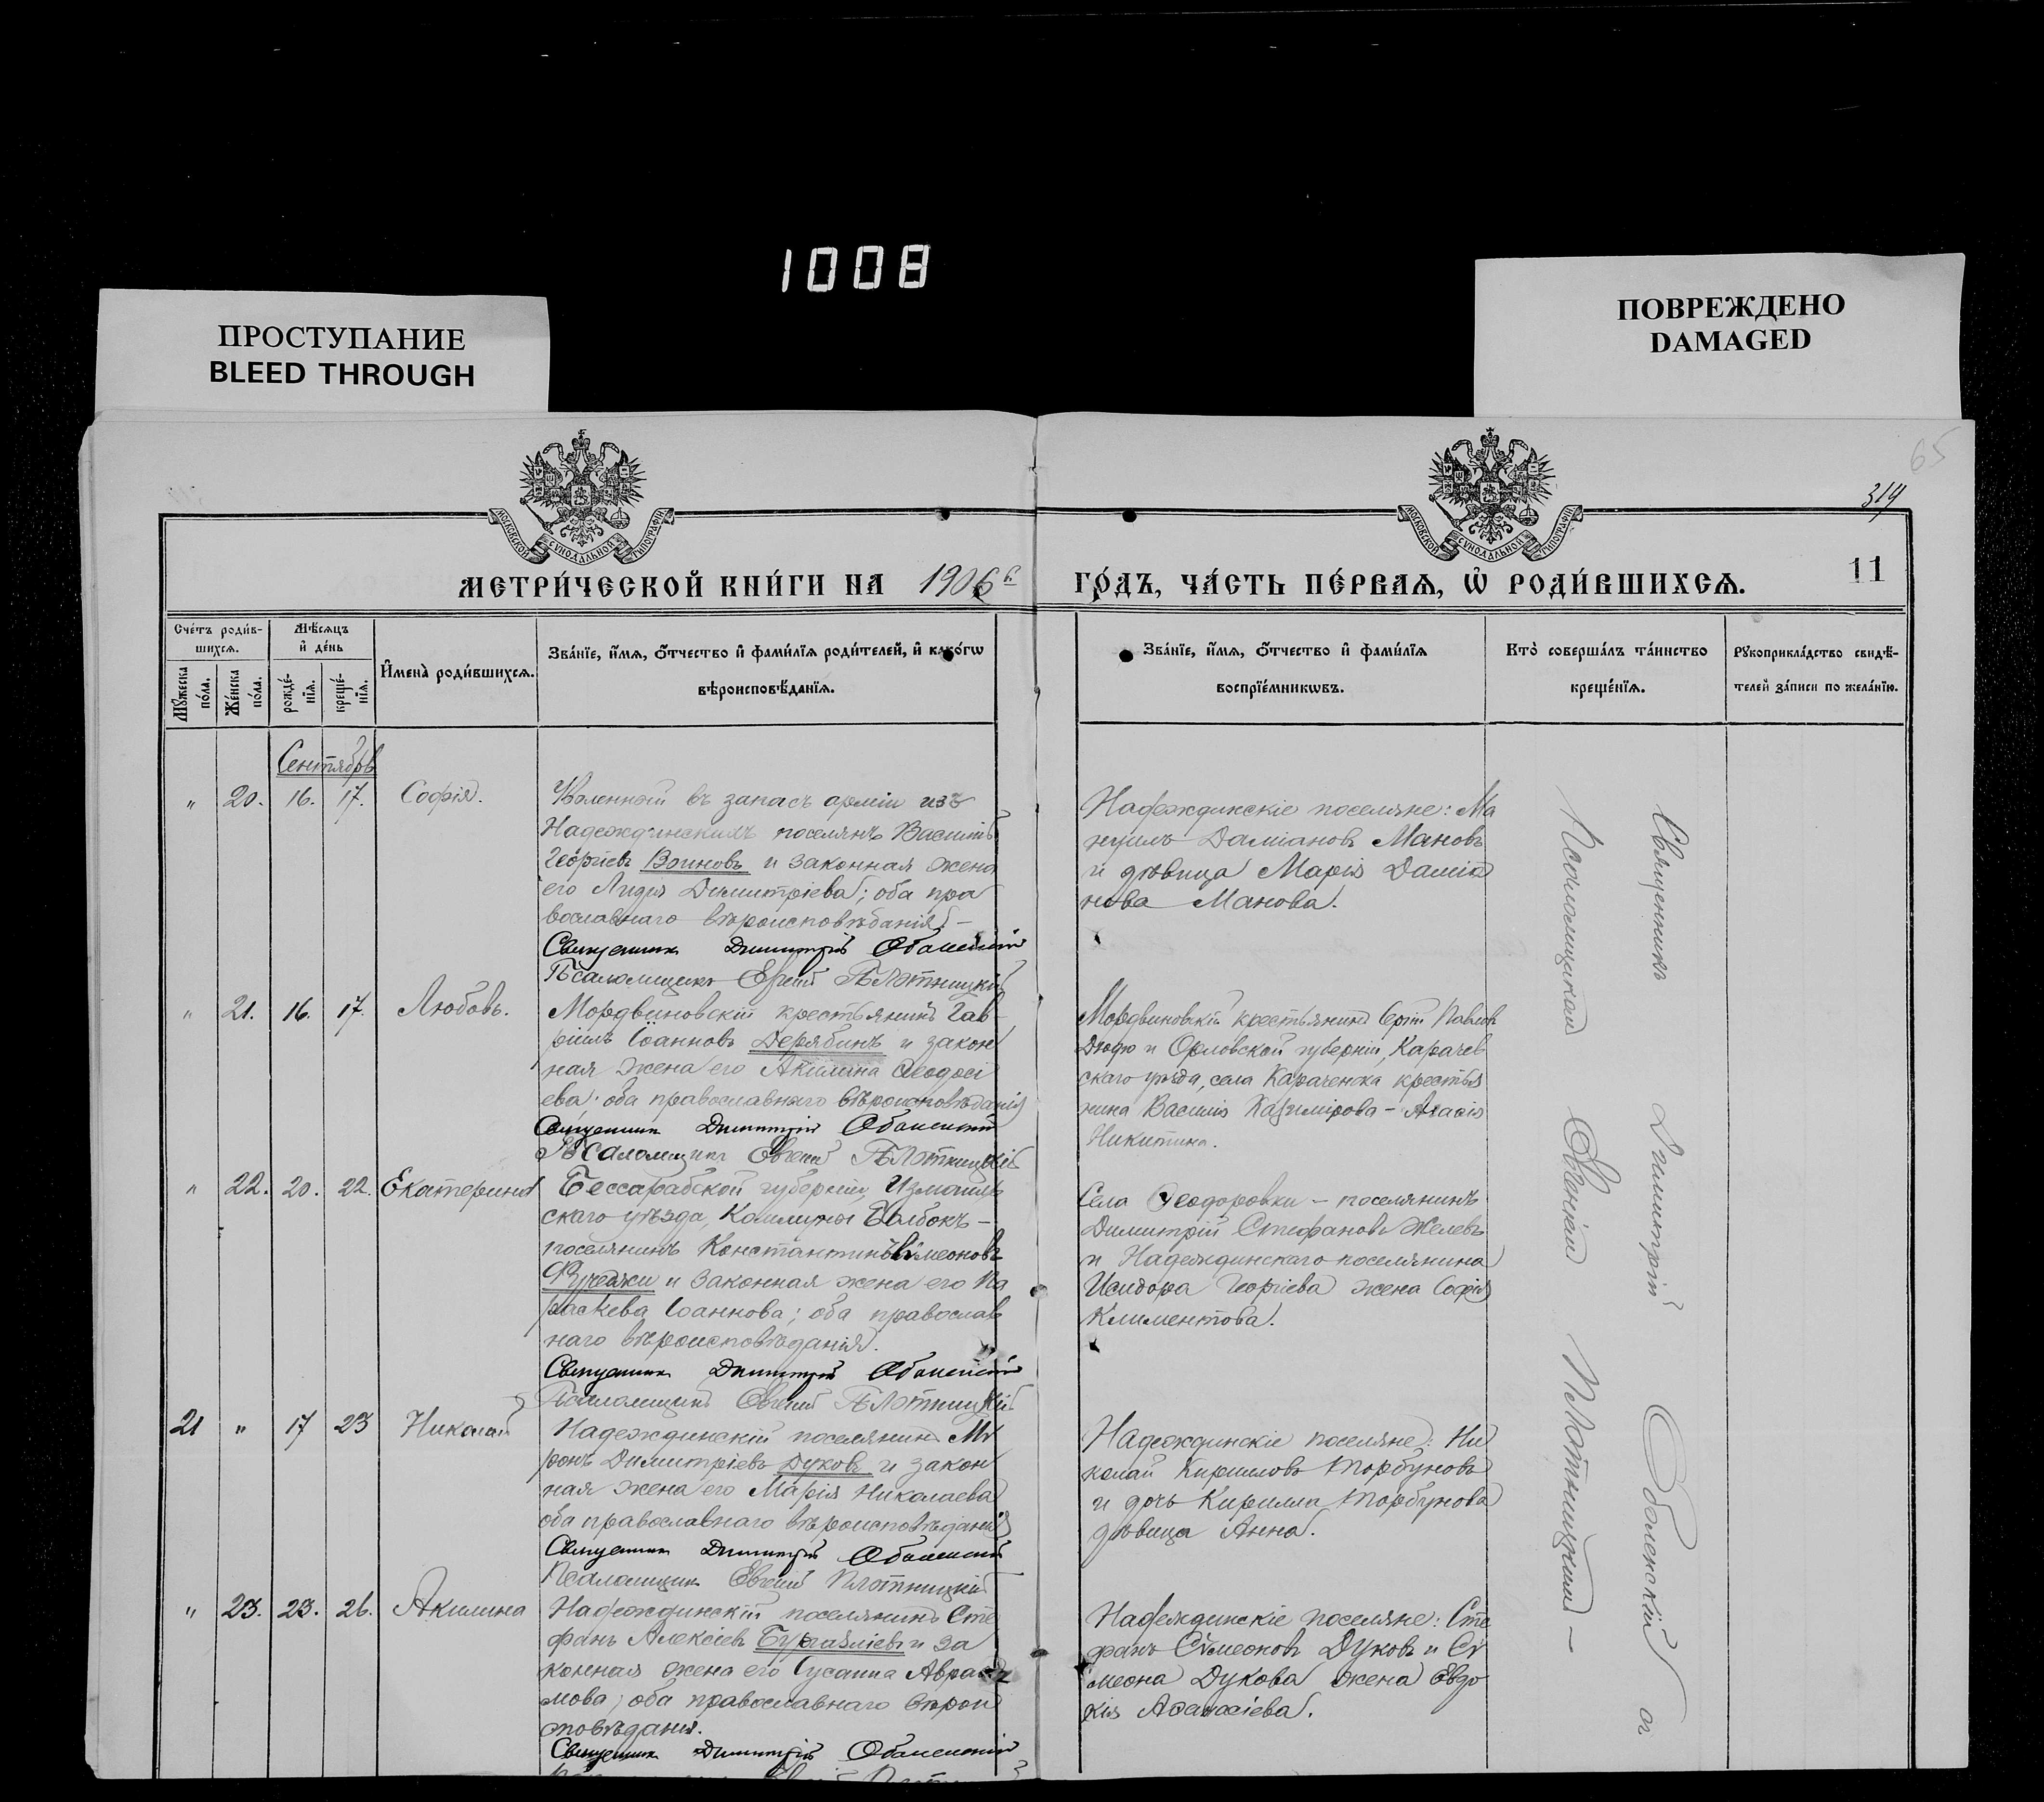 1008
ПРОСТУПАНИЕ
BLEED THROUGH
ПОВРЕЖДЕНО
DAMAGED
65
319
11
МОСКОВСКОЙ СѴНОДАЛЬНОЙ ТИПОГРАФІИ
МОСКОВСКОЙ СѴНОДАЛЬНОЙ ТИПОГРАФІИ
МЕТРИ́ЧЕСКОЙ КНИ́ГИ НА 1906
ГО́ДЪ, ЧА́СТЬ ПЕ́РВАѦ, Ѡ҆ РОДИ́ВШИХСѦ.
Сче́тъ роди́в-
шихсѧ.
Мѣ́сѧцъ
и҆ де́нь
Мꙋ́жеска
по́ла.
Же́нска
по́ла.
рожде́-
нїѧ.
креще́-
нїѧ.
И҆мена̀ роди́вшихсѧ.
Зва́нїе, и҆́мѧ, ѻ҆́тчество и҆ фами́лїѧ роди́телей, и҆ како́гѡ
вѣроисповѣ́данїѧ.
Зва́нїе, и҆́мѧ, ѻ҆́тчество и҆ фами́лїѧ
воспрїе́мникѡвъ.
Кто̀ соверша́лъ та́инство
креще́нїѧ.
Рꙋкоприкла́дство свидѣ́-
телей за́писи по жела́нїю.
Сентябрь
" 20. 16. 17. Софія.
Уволенный въ запасъ арміи изъ
Надеждинскихъ поселянъ Василій
Георгіевъ Воиновъ и законная жена
его Лидія Димитріева; оба пра
вославнаго вѣроисповѣданія.
Священникъ Димитрій Оболенскій
Псаломщикъ Евгеній Плотницкій
Надеждинскіе поселяне: Ма
нуилъ Даміановъ Мановъ
и дѣвица Марія Даміа
нова Манова.
" 21. 16. 17. Любовь.
Мордвиновскій крестьянинъ Гав
ріилъ Іоанновъ Дерябинъ и закон
ная жена его Акилина Ѳеодосі
ева; оба православнаго вѣроисповѣданія
Священникъ Димитрій Оболенскій
Псаломщикъ Евгеній Плотницкій
Мордвиновскій крестьянинъ Сергій Павловъ
и Орловской губерніи, Карачев
скаго уѣзда, села крестья
нина Василія Казимірова –
Никитина.
" 22. 20. 22. Екатерина
Бессарабской губерніи, Измаиль
скаго уѣзда, Коммуны Болбокъ –
поселянинъ Константинъ Симеоновъ
и законная жена его Па
раскева Іоаннова; оба православ
наго вѣроисповѣданія.
Священникъ Димитрій Оболенскій
Псаломщикъ Евгеній Плотницкій
Села Ѳеодоровки – поселянинъ
Димитрій Стефановъ Желевъ
и Надеждинскаго поселянина
Исидора Георгіева жена Софія
Климентова.
21 " 17 23 Николай
Надеждинскій поселянинъ Мѵ
ронъ Димитріевъ Дуковъ и закон
ная жена его Марія Николаева
оба православнаго вѣроисповѣданія
Священникъ Димитрій Оболенскій
Псаломщикъ Евгеній Плотницкій
Надеждинскіе поселяне: Ни
колай Кирилловъ Торбуновъ
и дочь Кирилла Торбунова
дѣвица Анна.
" 23. 23. 26. Акилина
Надеждинскій поселянинъ Сте
фанъ Алексіевъ и за
конная жена его Сусанна Авраа
мова; оба православнаго вѣрои
сповѣданія.
Священникъ Димитрій Оболенскій
Надеждинскіе поселяне: Сте
фанъ Сѵмеоновъ Дуковъ и Сѵ
меона Дукова жена Евдо
кія Аѳанасіева.
Священникъ Димитрій Оболенскій съ
Псаломщикомъ Евгеніем Плотницкимъ –